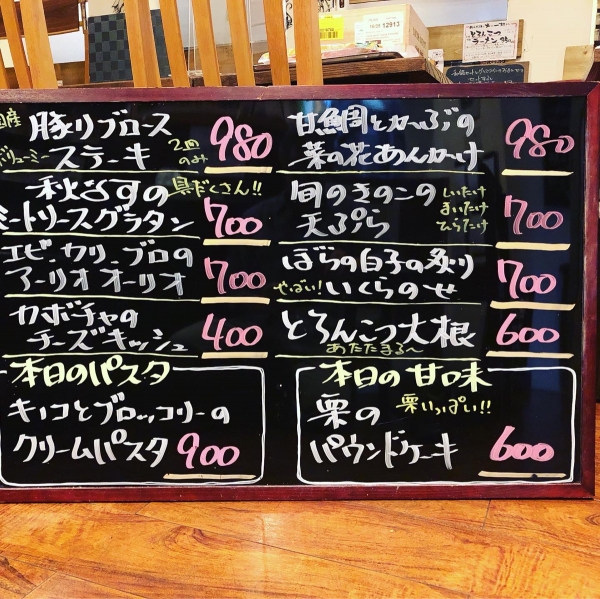 産 豚リブロース
ボリューミー ステーキ 2皿のみ 980
秋なすの 具だくさん!!
ミートソースグラタン 700
エビ.カリ.ブロの
アーリオオーリオ 700
カボチャの
チーズキッシュ 400
本日のパスタ
キノコとブロッコリーの
クリームパスタ 900
甘鯛とかぶの
菜の花あんかけ 980
旬のきのこの しいたけ
天ぷら まいたけ
ひらたけ 700
ぼらの白子の炙り
やばい! いくらのせ 700
とろんこつ大根 600
あたたまる〜
本日の甘味
栗の 栗いっぱい!!
パウンドケーキ 600
12913